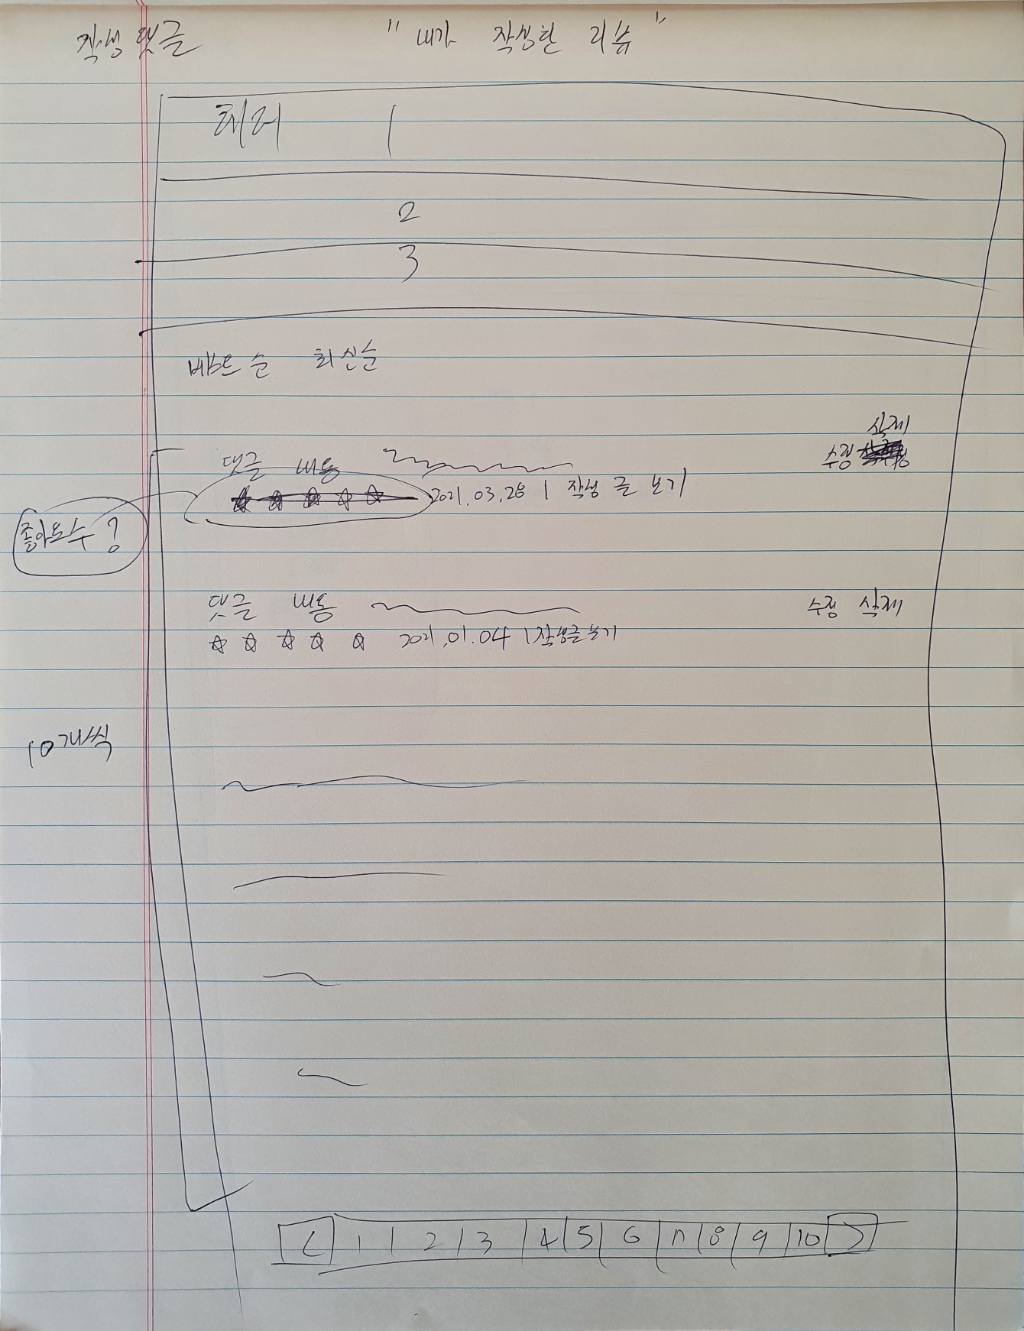 작성댓글 "내가 작성한 리뷰"
헤더 1
2
3
베스트순 최신순
삭제
댓글 내용 수정
2021.03.28 | 작성 글 보기
좋아요수?
댓글 내용 수정 삭제
☆ ☆ ☆ ☆ ☆ 2021.01.04 | 작성글보기
10개씩
< 1 2 3 4 5 6 7 8 9 10 >